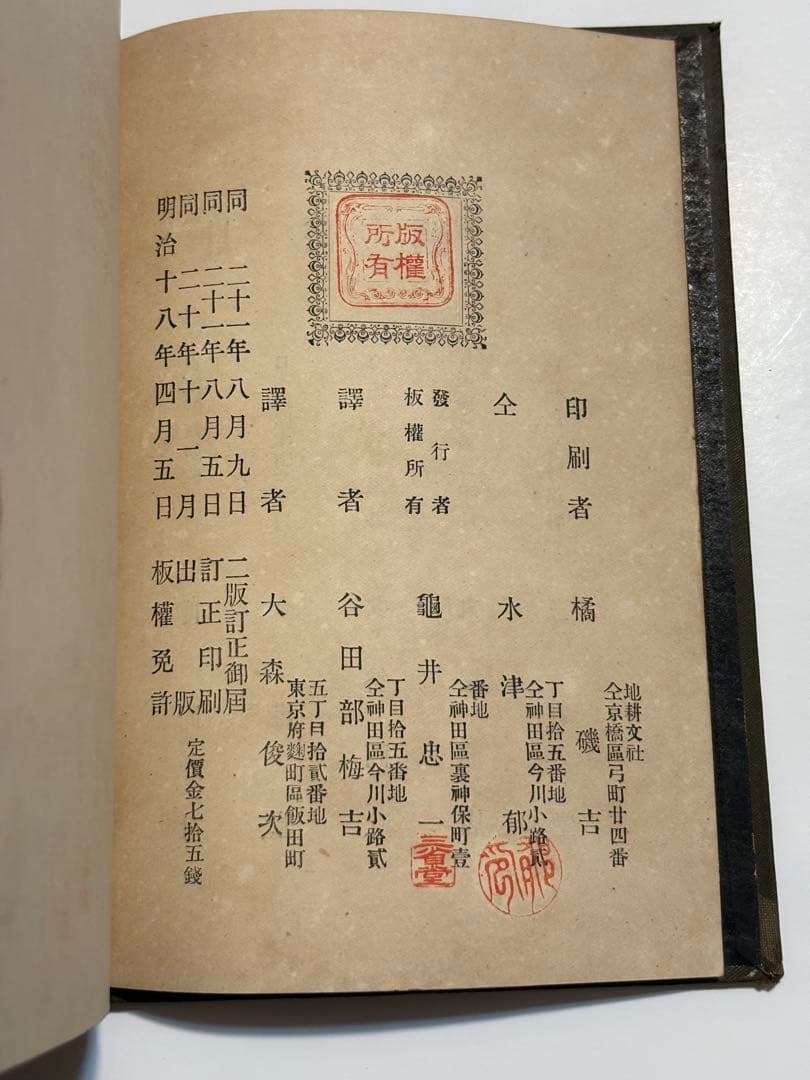 版權
所有
明治十八年四月五日 板權免許
同二十年十一月 出版
同二十一年八月五日 訂正印刷
同二十一年八月九日 二版訂正御屆
定價金七拾五錢
譯者 大森俊次
東京府麴町區飯田町
五丁目拾貳番地
譯者 谷田部梅吉
仝神田區今川小路貳
丁目拾五番地
板權所有
發行者
龜井忠一
三省堂
仝神田區裏神保町壹
番地
仝 水津郁
仝神田區今川小路貳
丁目拾五番地
印刷者 橘磯吉
仝京橋區弓町廿四番
地耕文社